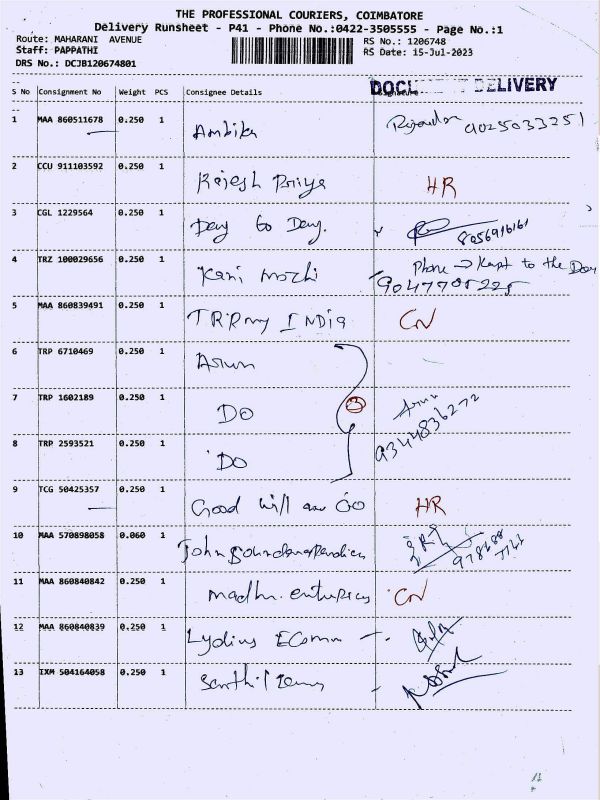 THE PROFESSIONAL COURIERS, COIMBATORE
Delivery Runsheet - P41 - Phone No.:0422-3505555 - Page No.:1
Route: MAHARANI AVENUE RS No.: 1206748
Staff: PAPPATHI RS Date: 15-Jul-2023
DRS No.: DCJB120674801
DELIVERY
S No Consignment No Weight PCS Consignee Details Signature
1 MAA 860511678 0.250 1 Ambika 9025033251
2 CCU 911103592 0.250 1 Rajesh Priya HR
3 CGL 1229564 0.250 1 Day to Day. 8056916161
4 TRZ 100029656 0.250 1 Kani mozhi Phone → Kept to the Door
9047705225
5 MAA 860839491 0.250 1 INDIA CN
6 TRP 6710469 0.250 1 Arun
7 TRP 1602189 0.250 1 DO 3 Arun
9344836272
8 TRP 2593521 0.250 1 DO
9 TCG 50425357 0.250 1 Good Will HR
10 MAA 570898058 0.060 1 John
11 MAA 860840842 0.250 1 Madhu enterprises CN
12 MAA 860840839 0.250 1 Lydius EComm
13 IXM 504164058 0.250 1 Senthil